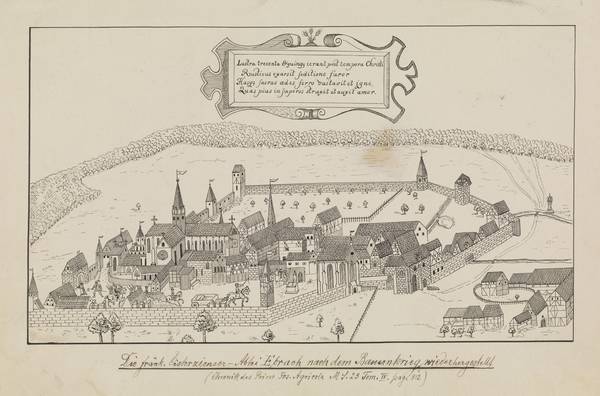 Lustra trecenta & quinq; erant post tempora Christi
Rusticus exarsit seditione furor
Hasq; sacras aedes ferro vastavit et igne
Quas pius in superos struxit et auxit amor.
Die fränk. Cisterzienser-Abtei Ebrach nach dem Bauernkrieg wiederhergestellt
(Chronik des Priors Jos. Agricola M.S. 23 Tom. IV. pag. 92)